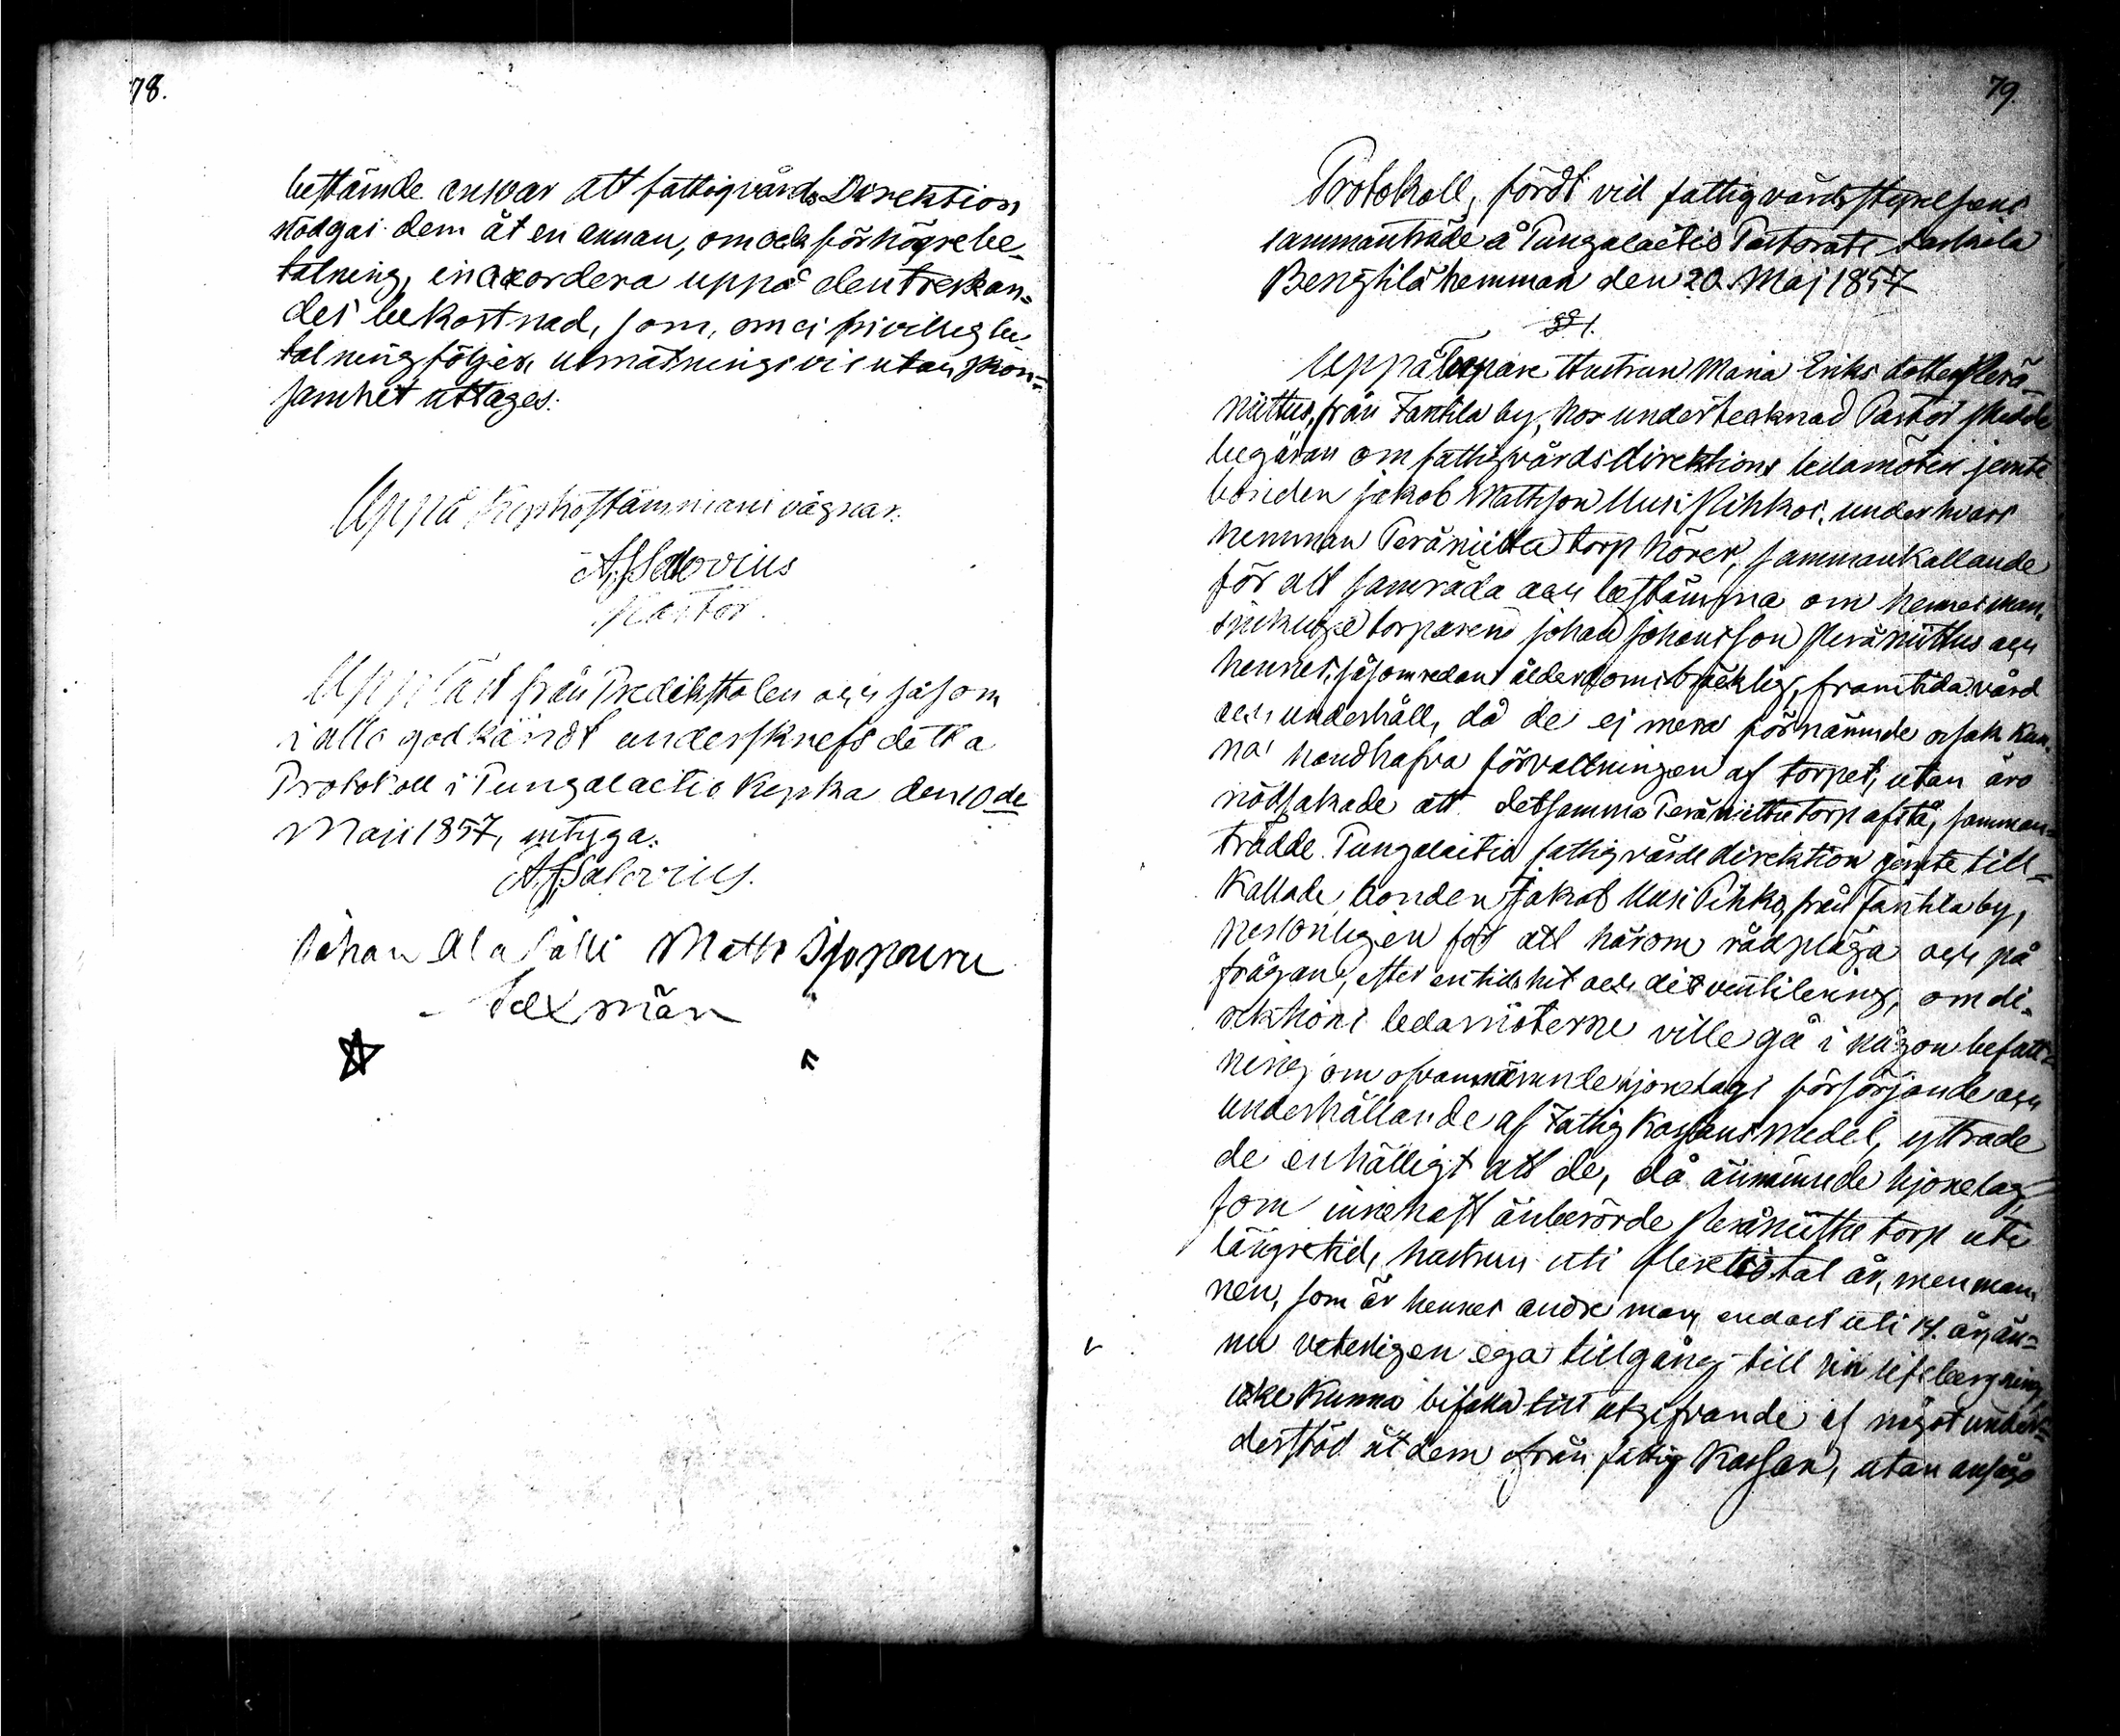 78.
bestämde answar att fattigvårds Direktion
nödgas dem åt en annan, om ock för högre be-
talning, inackordera uppå den treskan-
des bekostnad, som, om ej frivillig be-
talning följer, utmätningsvis utan skon-
samhet uttages.
Uppå Kyrkostämmans vägnar.
A. F. Salovius
Pastor.
Uppläst från Predikstolen och såsom
i allo godkändt underskrefs detta
Protokoll i Pungalaitio Kyrka den 10de
Maji 1857, intyga.
A. F. Salovius.
Johan Ala Jälli Matts Isopouru
Sexmän
79.
Protokoll, fördt vid fattigvårdsstyrelsens
sammanträde å Pungalaitio Pastorats
Bengtilä hemman den 20. Maj 1857
§ 1.
Uppå Torpare Hustrun Maria Eriks dotter Perä-
niittus, från Tantila by, hos undertecknad Pastor skedde
begäran om fattigvårdsdirektions ledamöters jemte
bonden Jakob Mattsson Uusi Pihkos, under hvars
hemman Peräniittu torp hörer, sammankallande
för att samråda och bestämma om hennes man,
sjuklige torparens Johan Johansson Peräniittus och
hennes, såsom redan ålderdomsbräcklig, framtida vård
och underhåll, då de ej mera förnämde orsak kun-
na handhafva förvaltningen af torpet, utan äro
nödsakade att detsamma Peräniittu torp afstå, samman-
trädde Pungalaitio fattigvårds direktion jemte till-
kallade bonden Jakob Uusi Pihko, från Tantila by,
personligen för att härom rådpläga och på
frågan, efter en tids hit och dit ventilering, om di-
rektions ledamöterne ville gå i någon befatt-
ning om ofvannämnde hjonelags försörjande och
underhållande af Fattig Kassans medel, yttrade
de enhälligt att de, då ännämnde hjonelag,
som innehaft änberörde Peräniittu torp uti
längre tid, hustrun uti flere tiotal år, men man-
nen, som är hennes andre man, endast uti 14. år, än-
nu veterligen ega tillgång till sin lifsbergning,
icke kunna bifalla till utgifvande af något under-
derstöd åt dem från fattig Kassan, utan ansågo